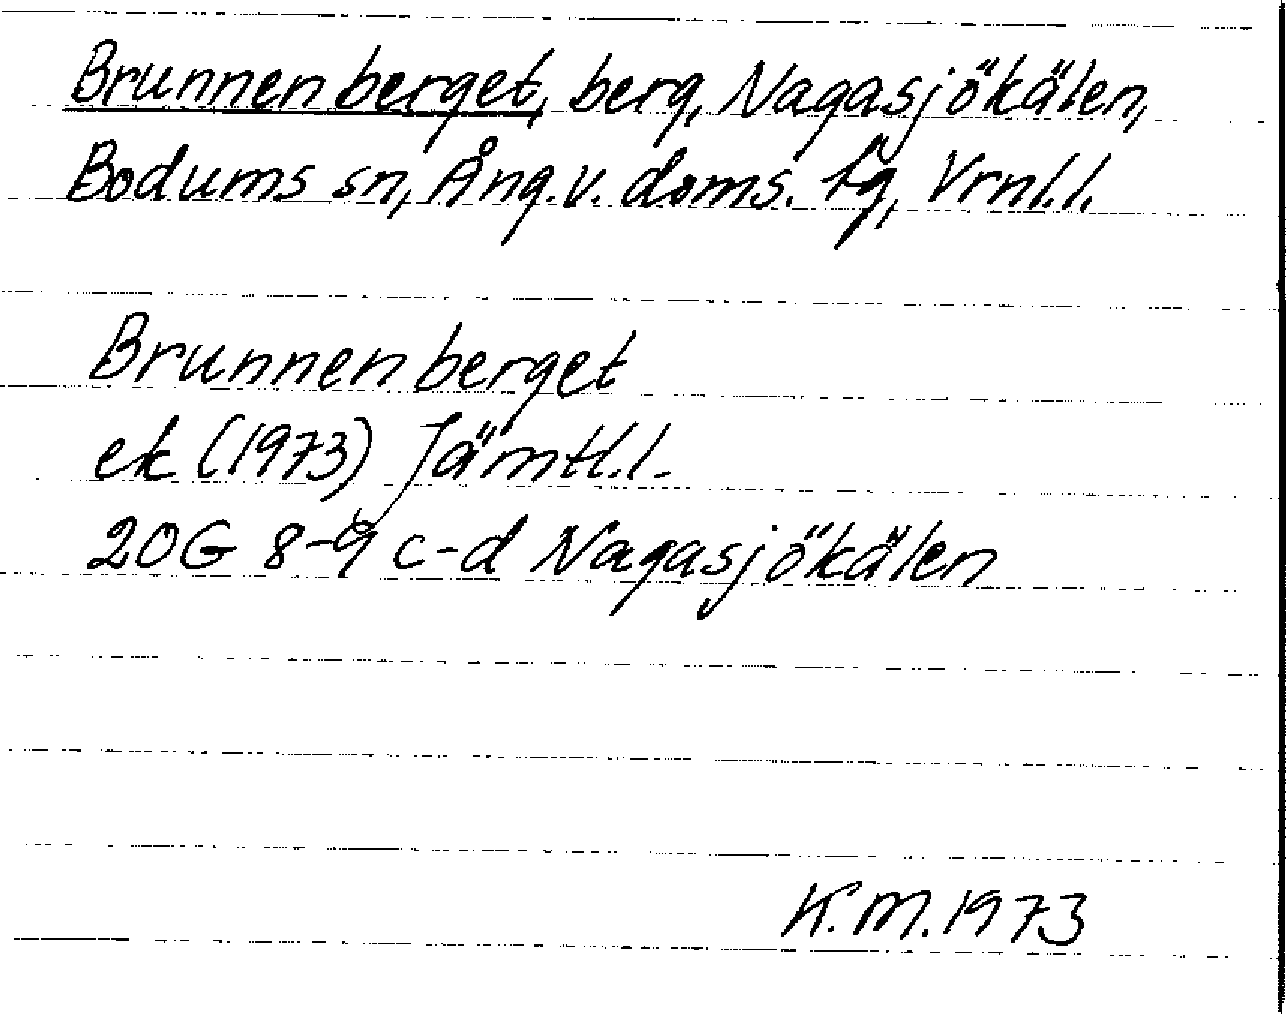 Brunnenberget, berg, Nagasjökälen,
Bodums sn, Ång.v. doms. fg, Vrnl.l.
Brunnenberget
ek (1973) Jämtl.l.
20G 8-9 c-d Nagasjökälen
K.M. 1973